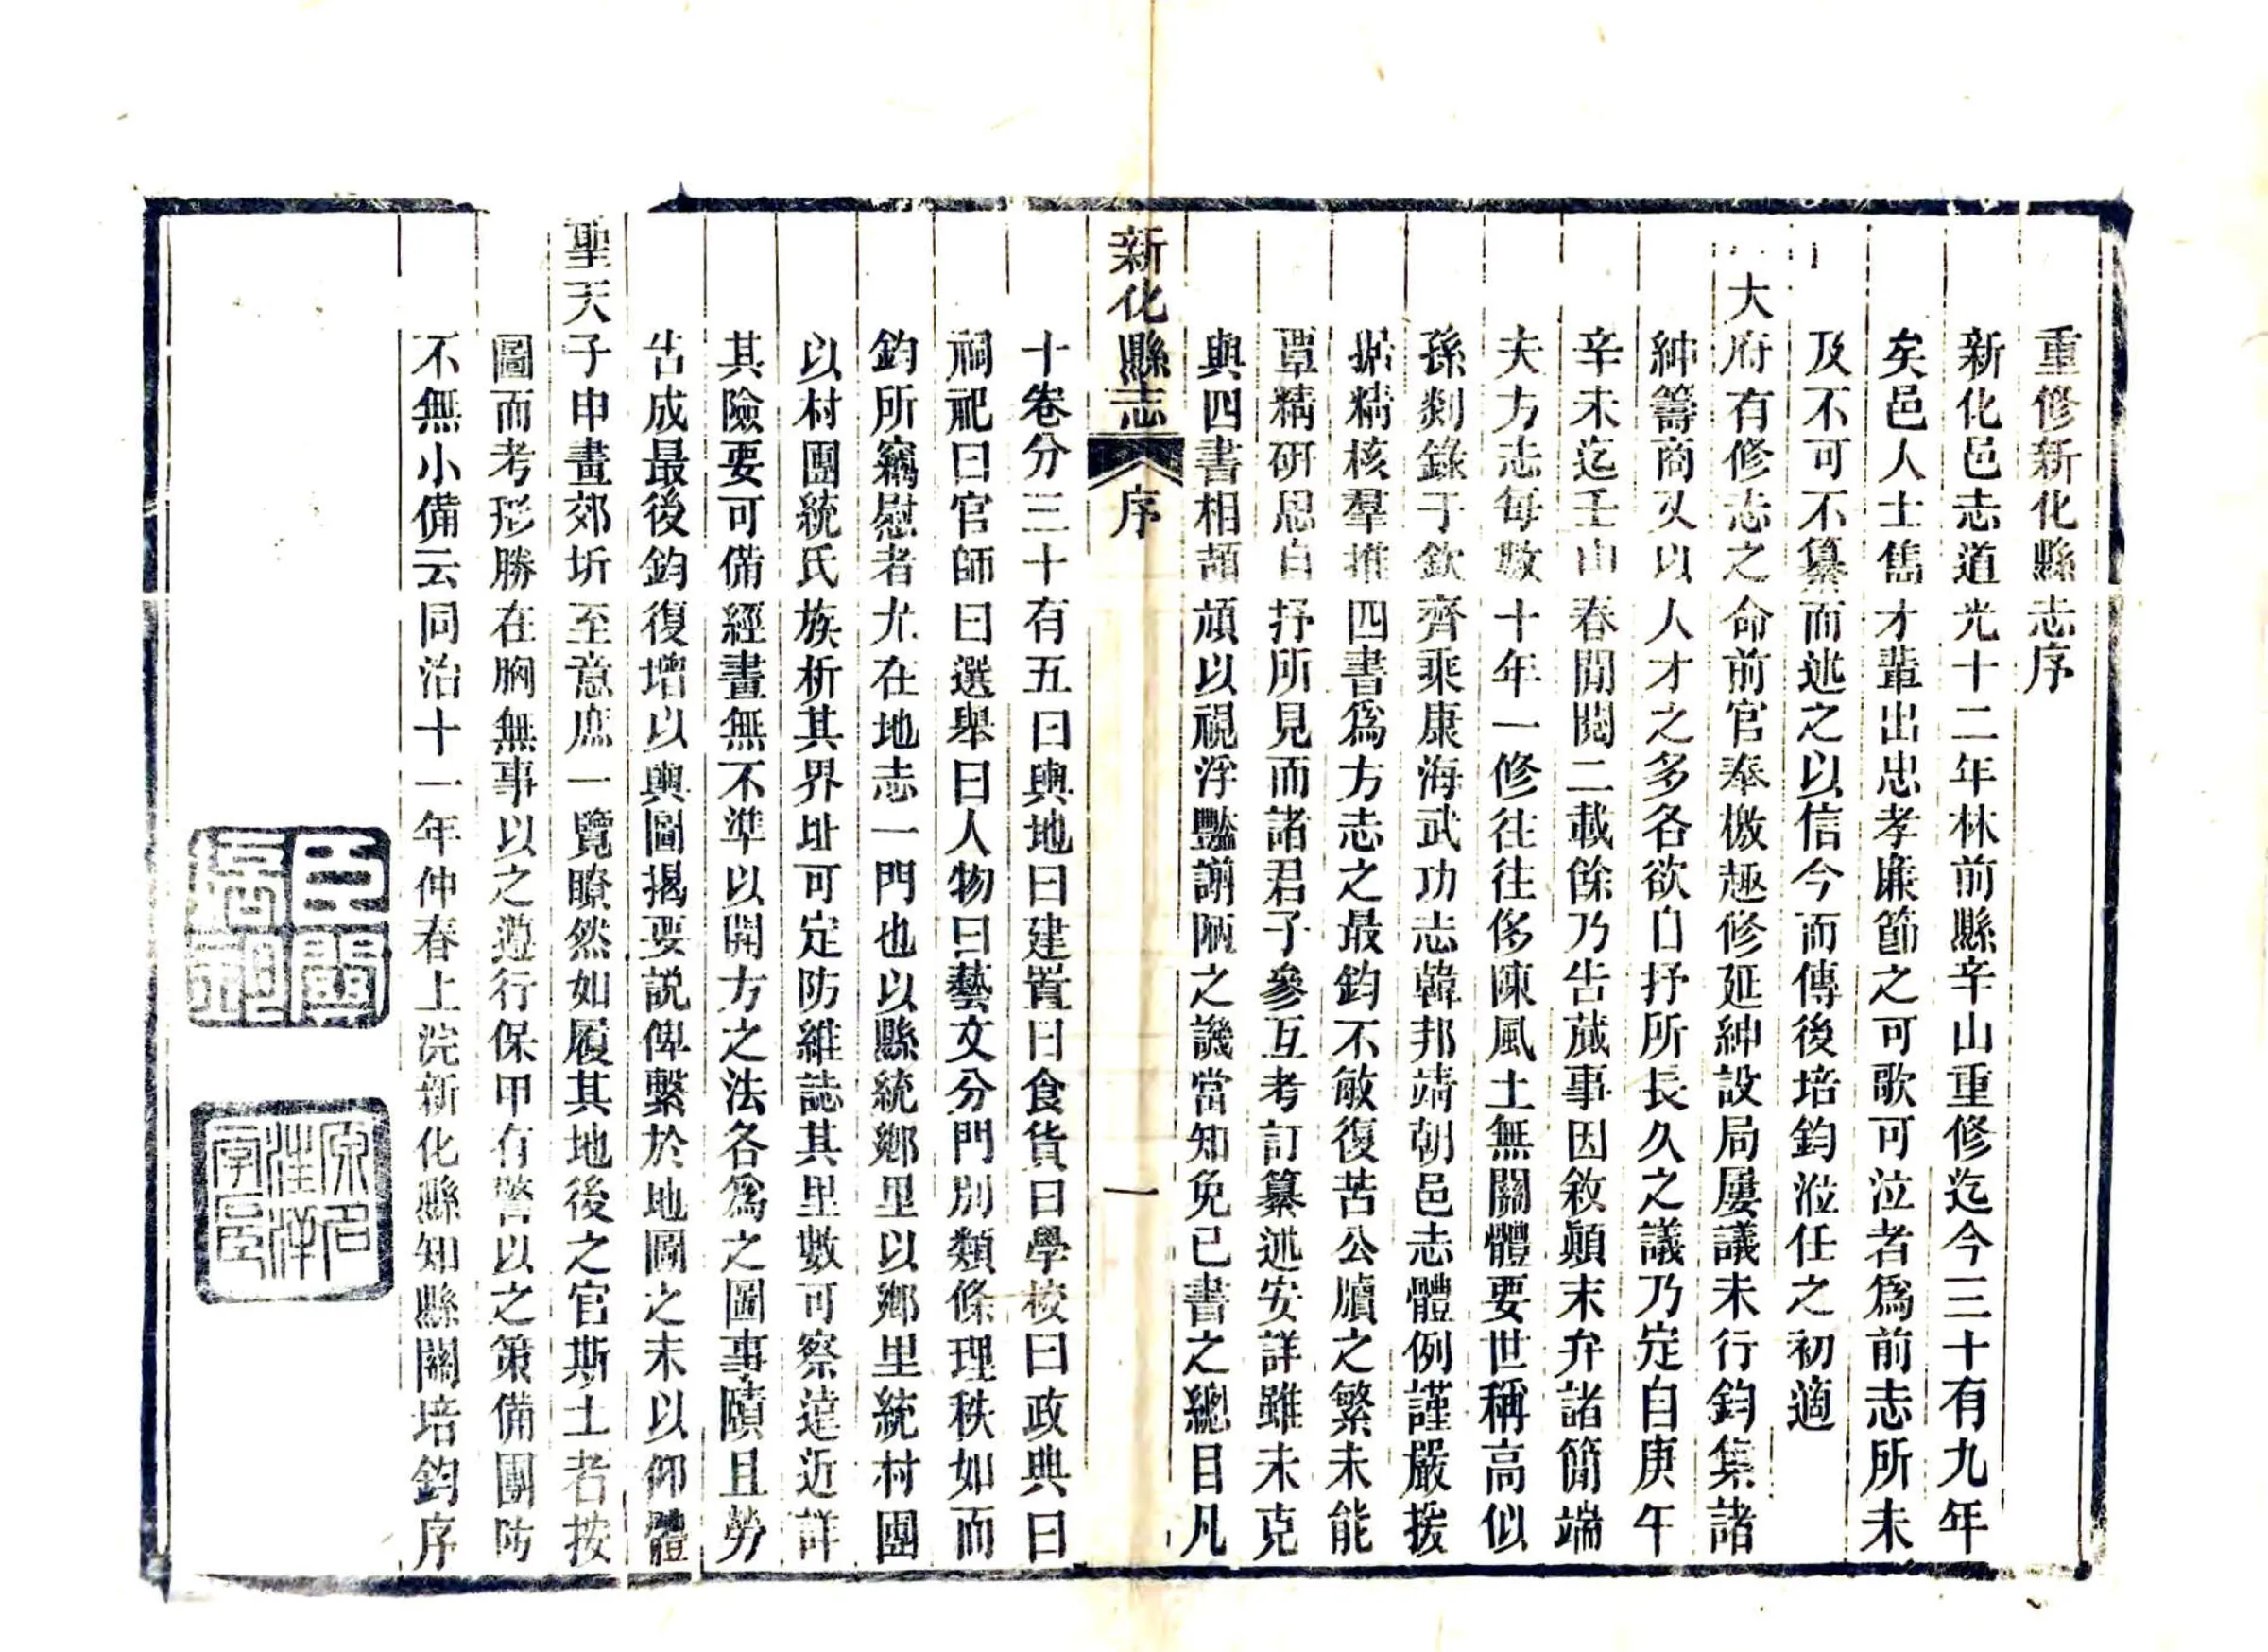 重修新化縣志序
新化邑志道光十二年林前縣辛山重修迄今三十有九年
矣邑人士雋才輩出忠孝廉節之可歌可泣者爲前志所未
及不可不纂而述之以信今而傳後培鈞涖任之初適
大府有修志之命前官奉檄趣修延紳設局屢議未行鈞集諸
紳籌商又以人才之多各欲自抒所長久之議乃定自庚午
辛未迄壬申春閒閱二載餘乃告蕆事因敘顛末弁諸簡端
夫方志每數十年一修往往侈陳風土無關體要世稱高似
孫剡錄于欽齊乘康海武功志韓邦靖朝邑志體例謹嚴援
据精核羣推四書爲方志之最鈞不敏復苦公牘之繁未能
覃精研思自抒所見而諸君子參互考訂纂述安詳雖未克
與四書相頡頏以視浮豔謭陋之譏當知免已書之總目凡
新化縣志 序 一
十卷分三十有五曰輿地曰建置曰食貨曰學校曰政典曰
祠祀曰官師曰選舉曰人物曰藝文分門別類條理秩如而
鈞所竊慰者尤在地志一門也以縣統鄉里以鄉里統村團
以村團統氏族析其界址可定防維誌其里數可察遠近詳
其險要可備經畫無不準以開方之法各爲之圖事賾且勞
告成最後鈞復增以輿圖揭要說俾繫於地圖之末以仰體
聖天子申畫郊圻至意庶一覽瞭然如履其地後之官斯土者按
圖而考形勝在胸無事以之遵行保甲有警以之策備團防
不無小備云同治十一年仲春上浣新化縣知縣關培鈞序